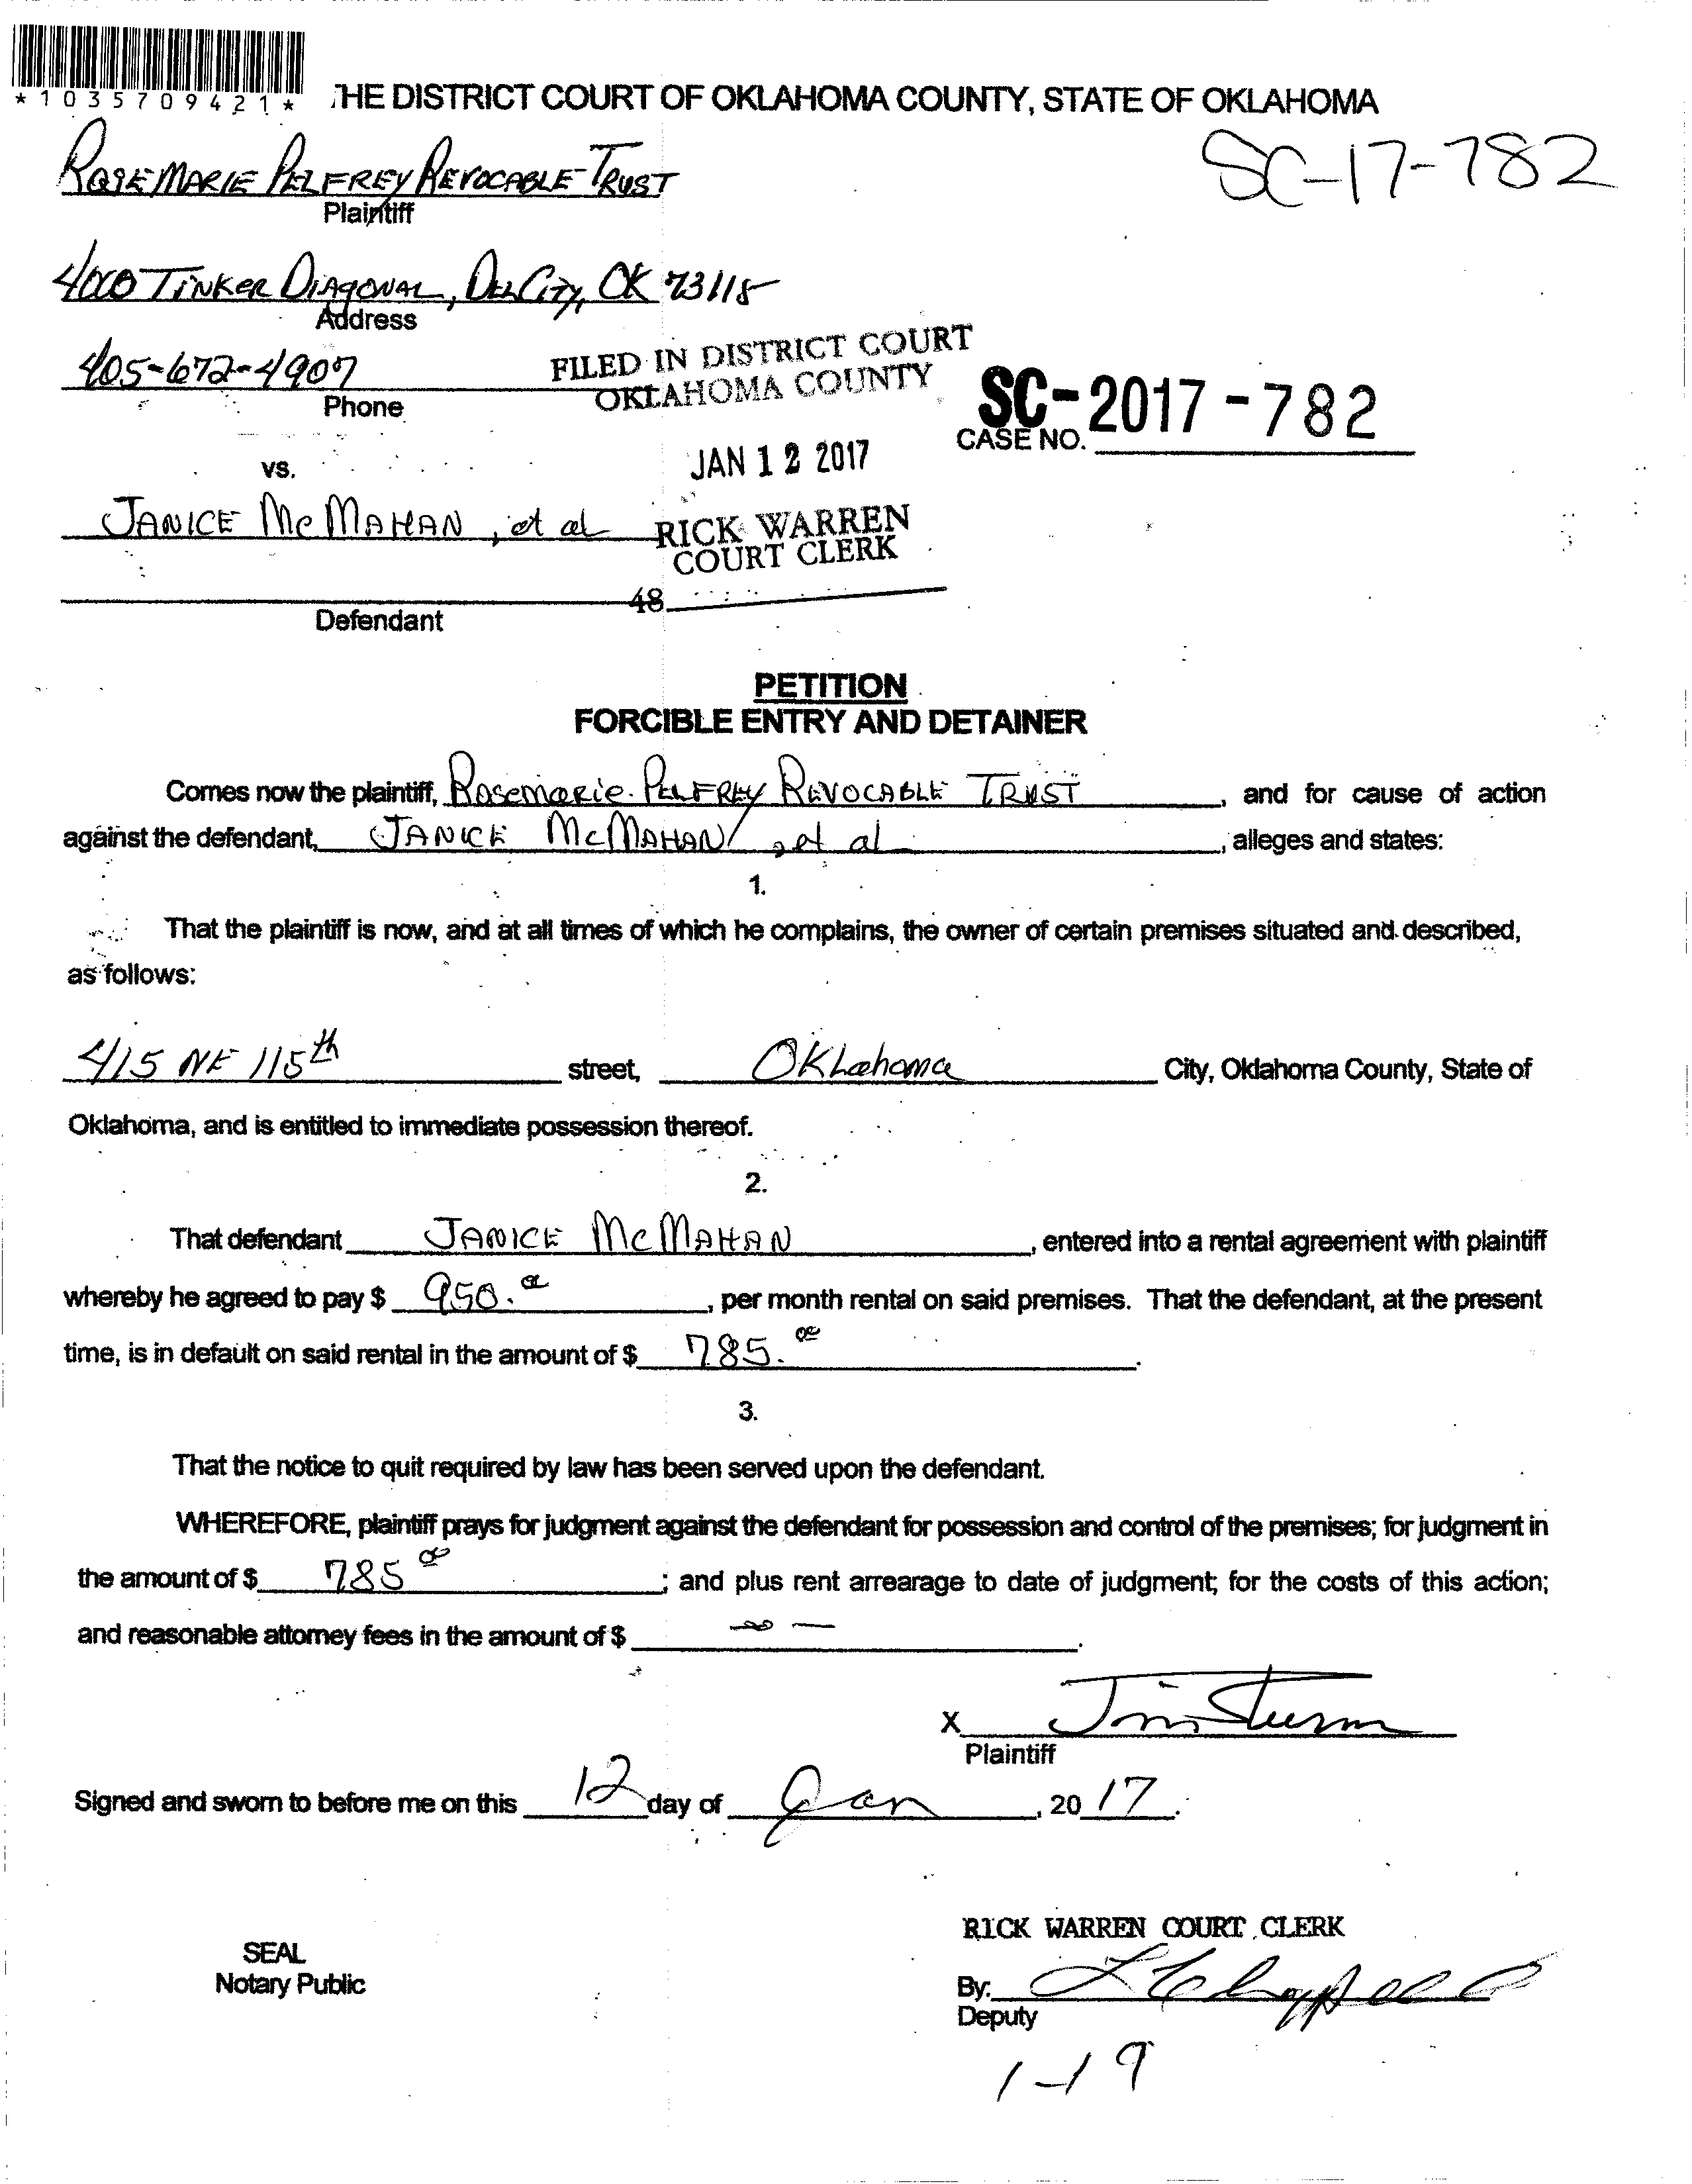 *1035709421*
THE DISTRICT COURT OF OKLAHOMA COUNTY, STATE OF OKLAHOMA
SC-17-782
ROSEMARIE PELFREY REVOCABLE TRUST
Plaintiff
4000 TINKER DIAGONAL, DEL CITY, OK 73115
Address
405-672-4907
Phone
FILED IN DISTRICT COURT
OKLAHOMA COUNTY
SC-2017-782
CASE NO.
JAN 12 2017
vs.
JANICE McMAHAN, et al
RICK WARREN
COURT CLERK
48
Defendant
PETITION
FORCIBLE ENTRY AND DETAINER
Comes now the plaintiff, Rosemarie PELFREY REVOCABLE TRUST, and for cause of action
against the defendant, JANICE McMAHAN, et al, alleges and states:
1.
That the plaintiff is now, and at all times of which he complains, the owner of certain premises situated and described,
as follows:
415 NE 115th street, OKLahoma City, Oklahoma County, State of
Oklahoma, and is entitled to immediate possession thereof.
2.
That defendant JANICE McMAHAN, entered into a rental agreement with plaintiff
whereby he agreed to pay $ 950.00, per month rental on said premises. That the defendant, at the present
time, is in default on said rental in the amount of $ 785.00.
3.
That the notice to quit required by law has been served upon the defendant.
WHEREFORE, plaintiff prays for judgment against the defendant for possession and control of the premises; for judgment in
the amount of $ 785 00; and plus rent arrearage to date of judgment; for the costs of this action;
and reasonable attorney fees in the amount of $
X Jim Sturm
Plaintiff
Signed and sworn to before me on this 12 day of Jan, 2017.
RICK WARREN COURT CLERK
SEAL
Notary Public
By:
Deputy
1-19